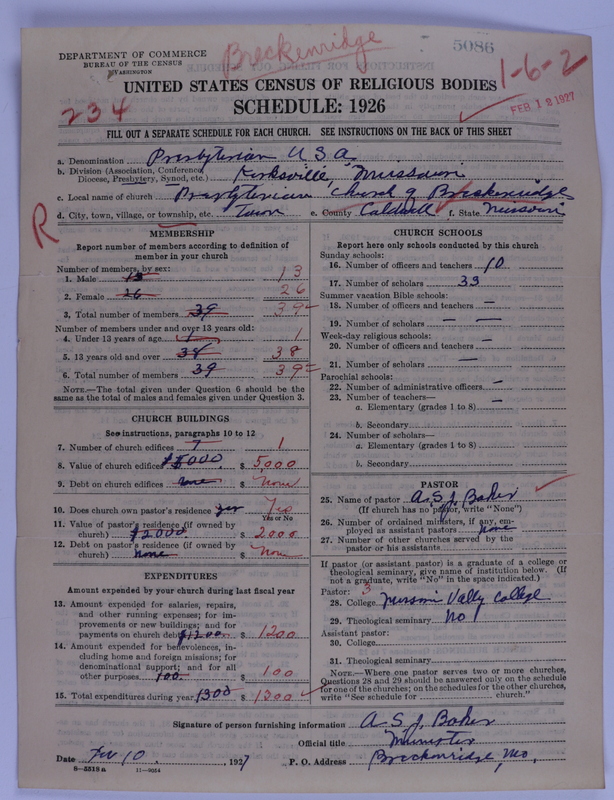 DEPARTMENT OF COMMERCE
BUREAU OF THE CENSUS
WASHINGTON
Breckenridge
5086
1-6-2
234
FEB 12 1927
UNITED STATES CENSUS OF RELIGIOUS BODIES
SCHEDULE: 1926
FILL OUT A SEPARATE SCHEDULE FOR EACH CHURCH. SEE INSTRUCTIONS ON THE BACK OF THIS SHEET
a. Denomination Presbyterian U S A
b. Division (Association, Conference, Diocese, Presbytery, Synod, etc.) Kirksville, Missouri
c. Local name of church Presbyterian Church of Breckenridge
d. City, town, village, or township, etc. Town e. County Caldwell f. State Missouri
R
MEMBERSHIP
Report number of members according to definition
of member in your church
Number of members, by sex:
1. Male 13 13
2. Female 26 26
3. Total number of members 39 39
Number of members under and over 13 years old:
4. Under 13 years of age 1 1
5. 13 years old and over 38 38
6. Total number of members 39 39
NOTE.—The total given under Question 6 should be
same as the total of males and females given under Question 3.
CHURCH BUILDINGS
See instructions, paragraphs 10 to 12
7. Number of church edifices 1
8. Value of church edifices $5000 $ 5,000
9. Debt on church edifices none $ None
10. Does church own pastor's residence yes Yes
Yes or No
11. Value of pastor's residence (if owned by
church) $2000. $ 2000
12. Debt on pastor's residence (if owned by
church) None $ None
EXPENDITURES
Amount expended by your church during last fiscal year
13. Amount expended for salaries, repairs,
and other running expenses; for im-
provements or new buildings; and for
payments on church debt $1200. $ 1200
14. Amount expended for benevolences, in-
cluding home and foreign missions; for
denominational support; and for all
other purposes 100. $ 100
15. Total expenditures during year 1300 $ 1300
CHURCH SCHOOLS
Report here only schools conducted by this church
Sunday schools:
16. Number of officers and teachers 10
17. Number of scholars 33
Summer vacation Bible schools:
18. Number of officers and teachers —
19. Number of scholars — —
Week-day religious schools:
20. Number of officers and teachers —
21. Number of scholars —
Parochial schools:
22. Number of administrative officers —
23. Number of teachers— —
a. Elementary (grades 1 to 8)
b. Secondary
24. Number of scholars—
a. Elementary (grades 1 to 8)
b. Secondary
PASTOR
25. Name of pastor A. S. J. Baker
(If church has no pastor, write "None")
26. Number of ordained ministers, if any, em-
ployed as assistant pastors none
27. Number of other churches served by the
pastor or his assistants
If pastor (or assistant pastor) is a graduate of a college or
theological seminary, give name of institution below. (If
not a graduate, write "No" in the space indicated.)
Pastor: 3
28. College Missouri Vally College
29. Theological seminary No
Assistant pastor:
30. College
31. Theological seminary
NOTE.—Where one pastor serves two or more churches,
Questions 28 and 29 should be answered only on the schedule
for one of the churches; on the schedules for the other churches,
write "See schedule for church."
Signature of person furnishing information A S J. Baker
Official title Minister
Date Feb 10, 1927 P. O. Address Breckenridge, Mo,
8-5518a 11-9054